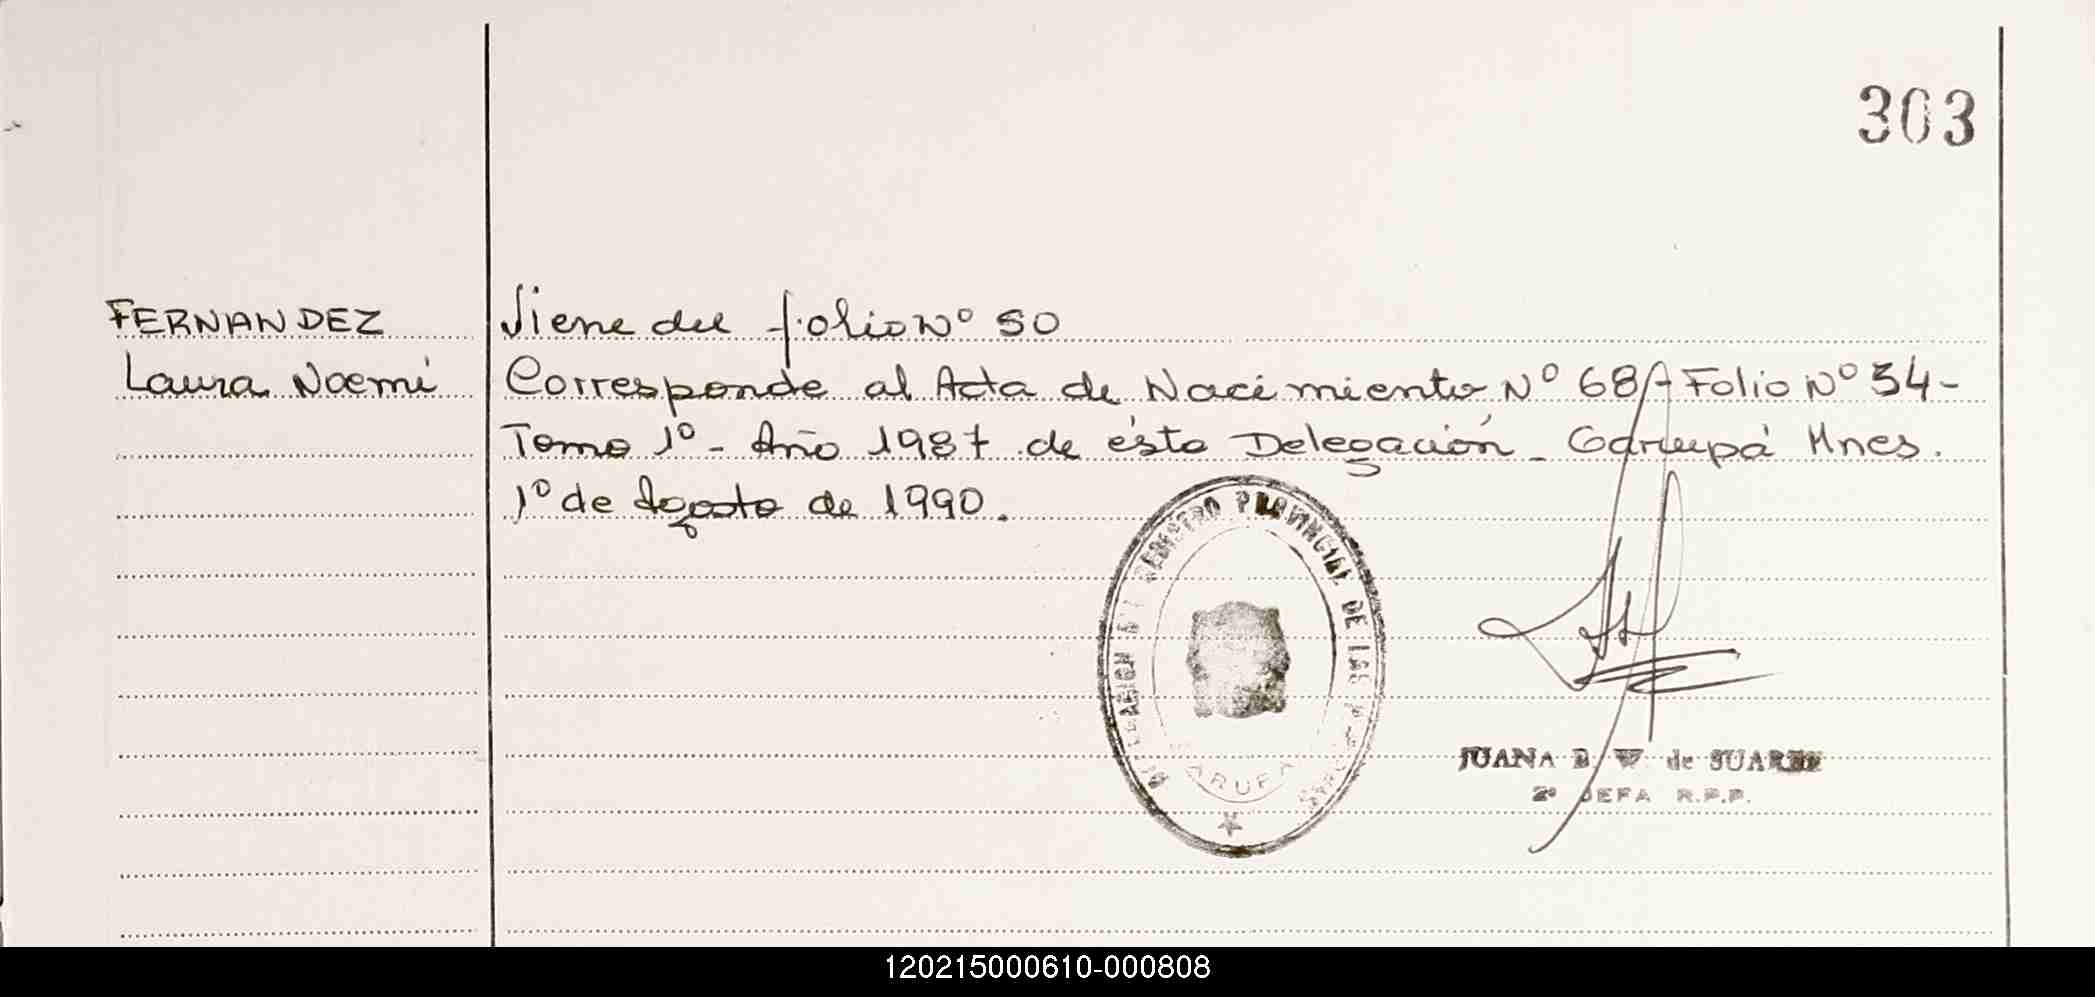 303
FERNANDEZ
Laura Noemi
Viene del folio Nº 50
Corresponde al Acta de Nacimiento Nº 68A Folio Nº 34-
Tomo 1º - Año 1987 de ésta Delegación - Garupá Mnes.
1º de Agosto de 1990.
REGISTRO PROVINCIAL DE LAS
JUANA B. W. de SUAREZ
2º JEFA R.P.P.
120215000610-000808